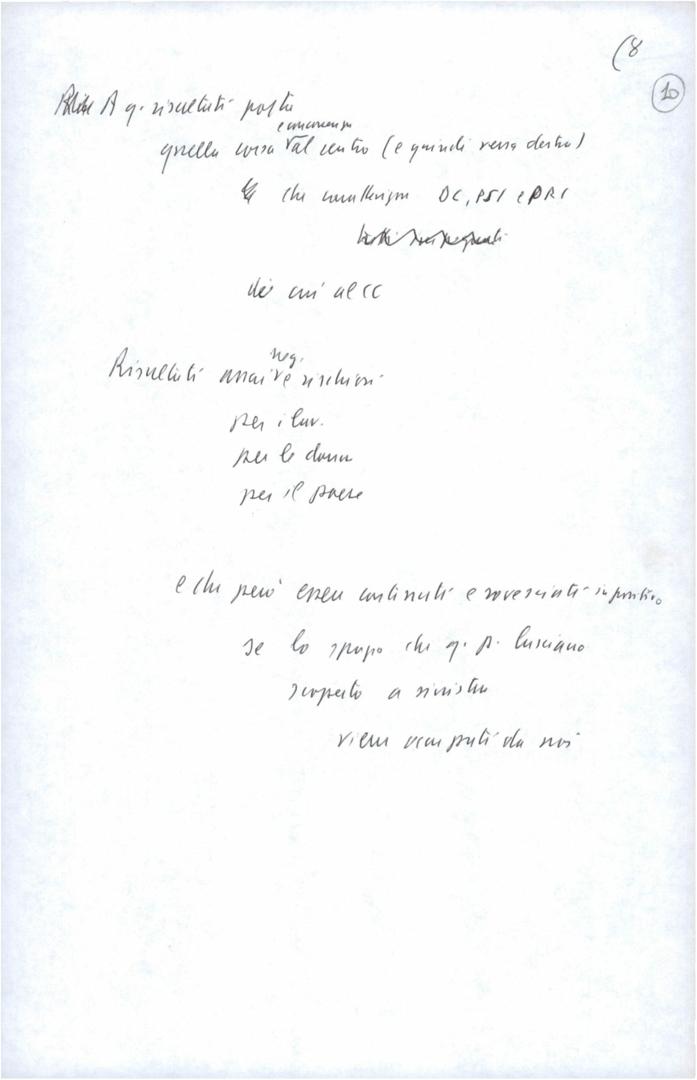 (8
10
A q. risultati porta
e concorrenza
quella corsa al centro (e quindi verso destra)
che DC, PSI e PRI
di cui al CC
neg.
Risultati assai e rischiosi
per i lav.
per le donne
per il paese
e che però essere e rovesciati in positivo
se lo spazio che q. p. lasciano
scoperto a sinistra
viene da noi